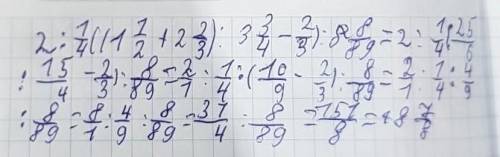 2 : 1/4 ((1 1/2 + 2 2/3) : 3 3/4 - 2/3) : 8 8/89 = 2 : 1/4 (25/6
: 15/4 - 2/3) : 8/89 = 2/1 : 1/4 : (10/9 - 2/3) : 8/89 = 2/1 : 1/4 : 4/9
: 8/89 = 8/1 : 4/9 : 8/89 = 37/4 : 8/89 = 157/8 = 18 7/8